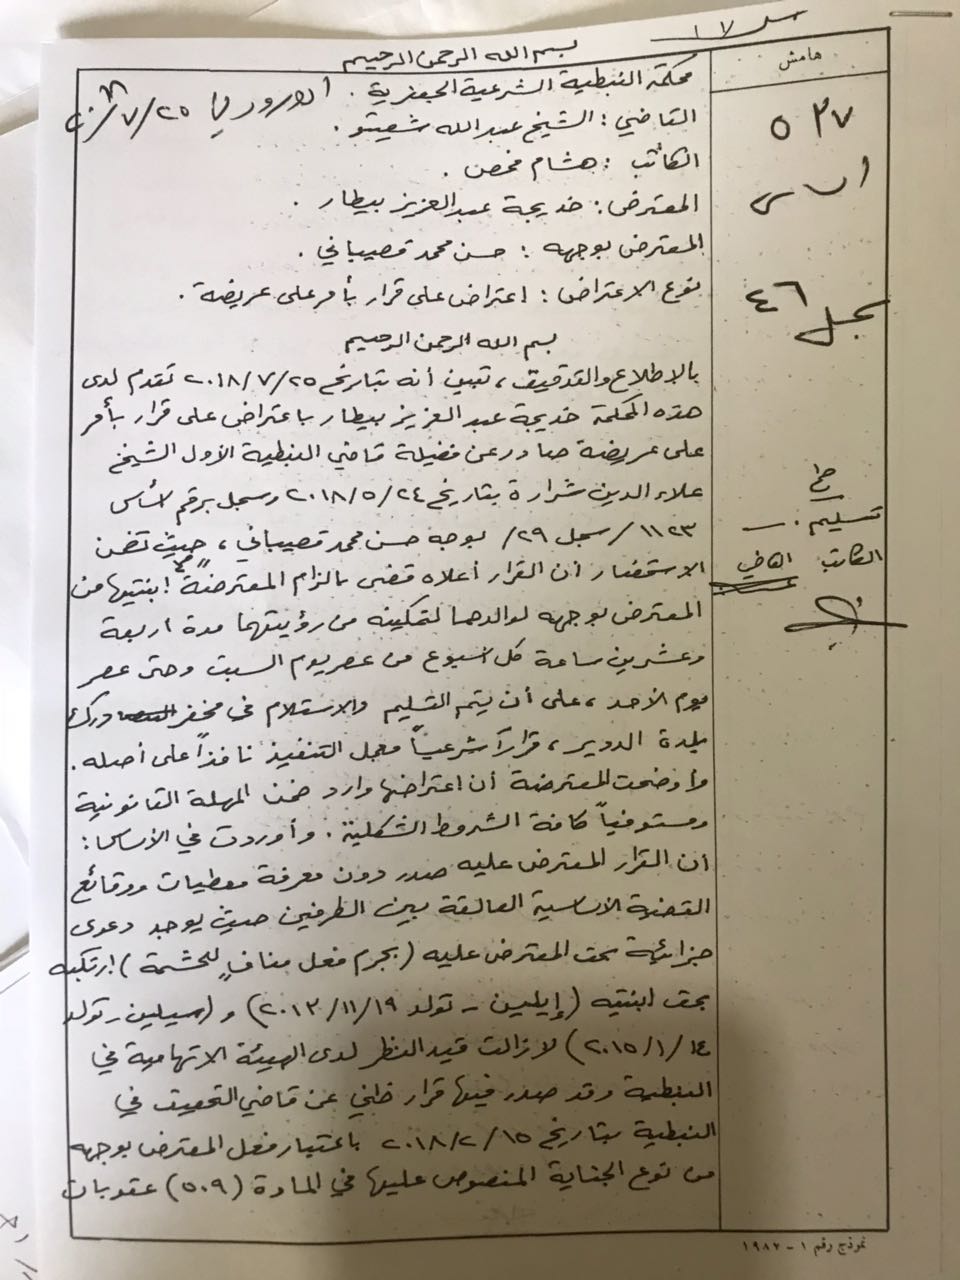 هامش
بسم الله الرحمن الرحيم
محكمة النبطية الشرعية الجعفرية .
القاضي : الشيخ عبد الله شعيتو .
الكاتب : هشام مخصن .
المعترض : خديجة عبد العزيز بيطار .
المعترض بوجهه : حسن محمد قصيباني .
نوع الاعتراض : اعتراض على قرار بأمر على عريضة .
٥٢٧
أساس
سجل ٤٦
بسم الله الرحمن الرحيم
بالاطلاع والتدقيق ، تبين أنه بتاريخ ٢٠١٨/٧/٢٥ تقدم لدى
هذه المحكمة خديجة عبد العزيز بيطار باعتراض على قرار بأمر
على عريضة صادر عن فضيلة قاضي النبطية الأول الشيخ
علاء الدين شرارة بتاريخ ٢٠١٨/٥/٢٤ وسجل برقم أساس
١١٢٣/ سجل ٢٩/ بوجه حسن محمد قصيباني ، حيث تضمن
الاستحضار أن القرار أعلاه قضى بالزام المعترضة ابنتيها من
المعترض بوجهه لوالدهما لتمكينه من رؤيتهما مدة اربعة
وعشرين ساعة كل اسبوع من عصر يوم السبت وحتى عصر
يوم الأحد ، على أن يتم التسليم والاستلام في مخفر درك
بلدة الدوير ، قراراً شرعياً معجل التنفيذ نافذاً على أصله .
وأوضحت المعترضة أن اعتراضها وارد ضمن المهلة القانونية
ومستوفياً كافة الشروط الشكلية . وأوردت في الأساس :
أن القرار المعترض عليه صدر دون معرفة معطيات ووقائع
القضية الاساسية العالقة بين الطرفين حيث يوجد دعوى
جزائية بحق المعترض عليه ( بجرم فعل منافٍ للحشمة ) ارتكبه
بحق ابنتيه ( إيلين - تولد ٢٠١٣/١١/١٩ ) و ( سيلين - تولد
٢٠١٥/١/١٤ ) لا زالت قيد النظر لدى الهيئة الاتهامية في
النبطية وقد صدر فيها قرار ظني عن قاضي التحقيق في
النبطية بتاريخ ٢٠١٨/٢/١٥ باعتبار فعل المعترض بوجهه
من نوع الجناية المنصوص عليها في المادة ( ٥٠٩ ) عقوبات
تسليم .
الكاتب القاضي
نموذج رقم ١ - ١٩٨٢